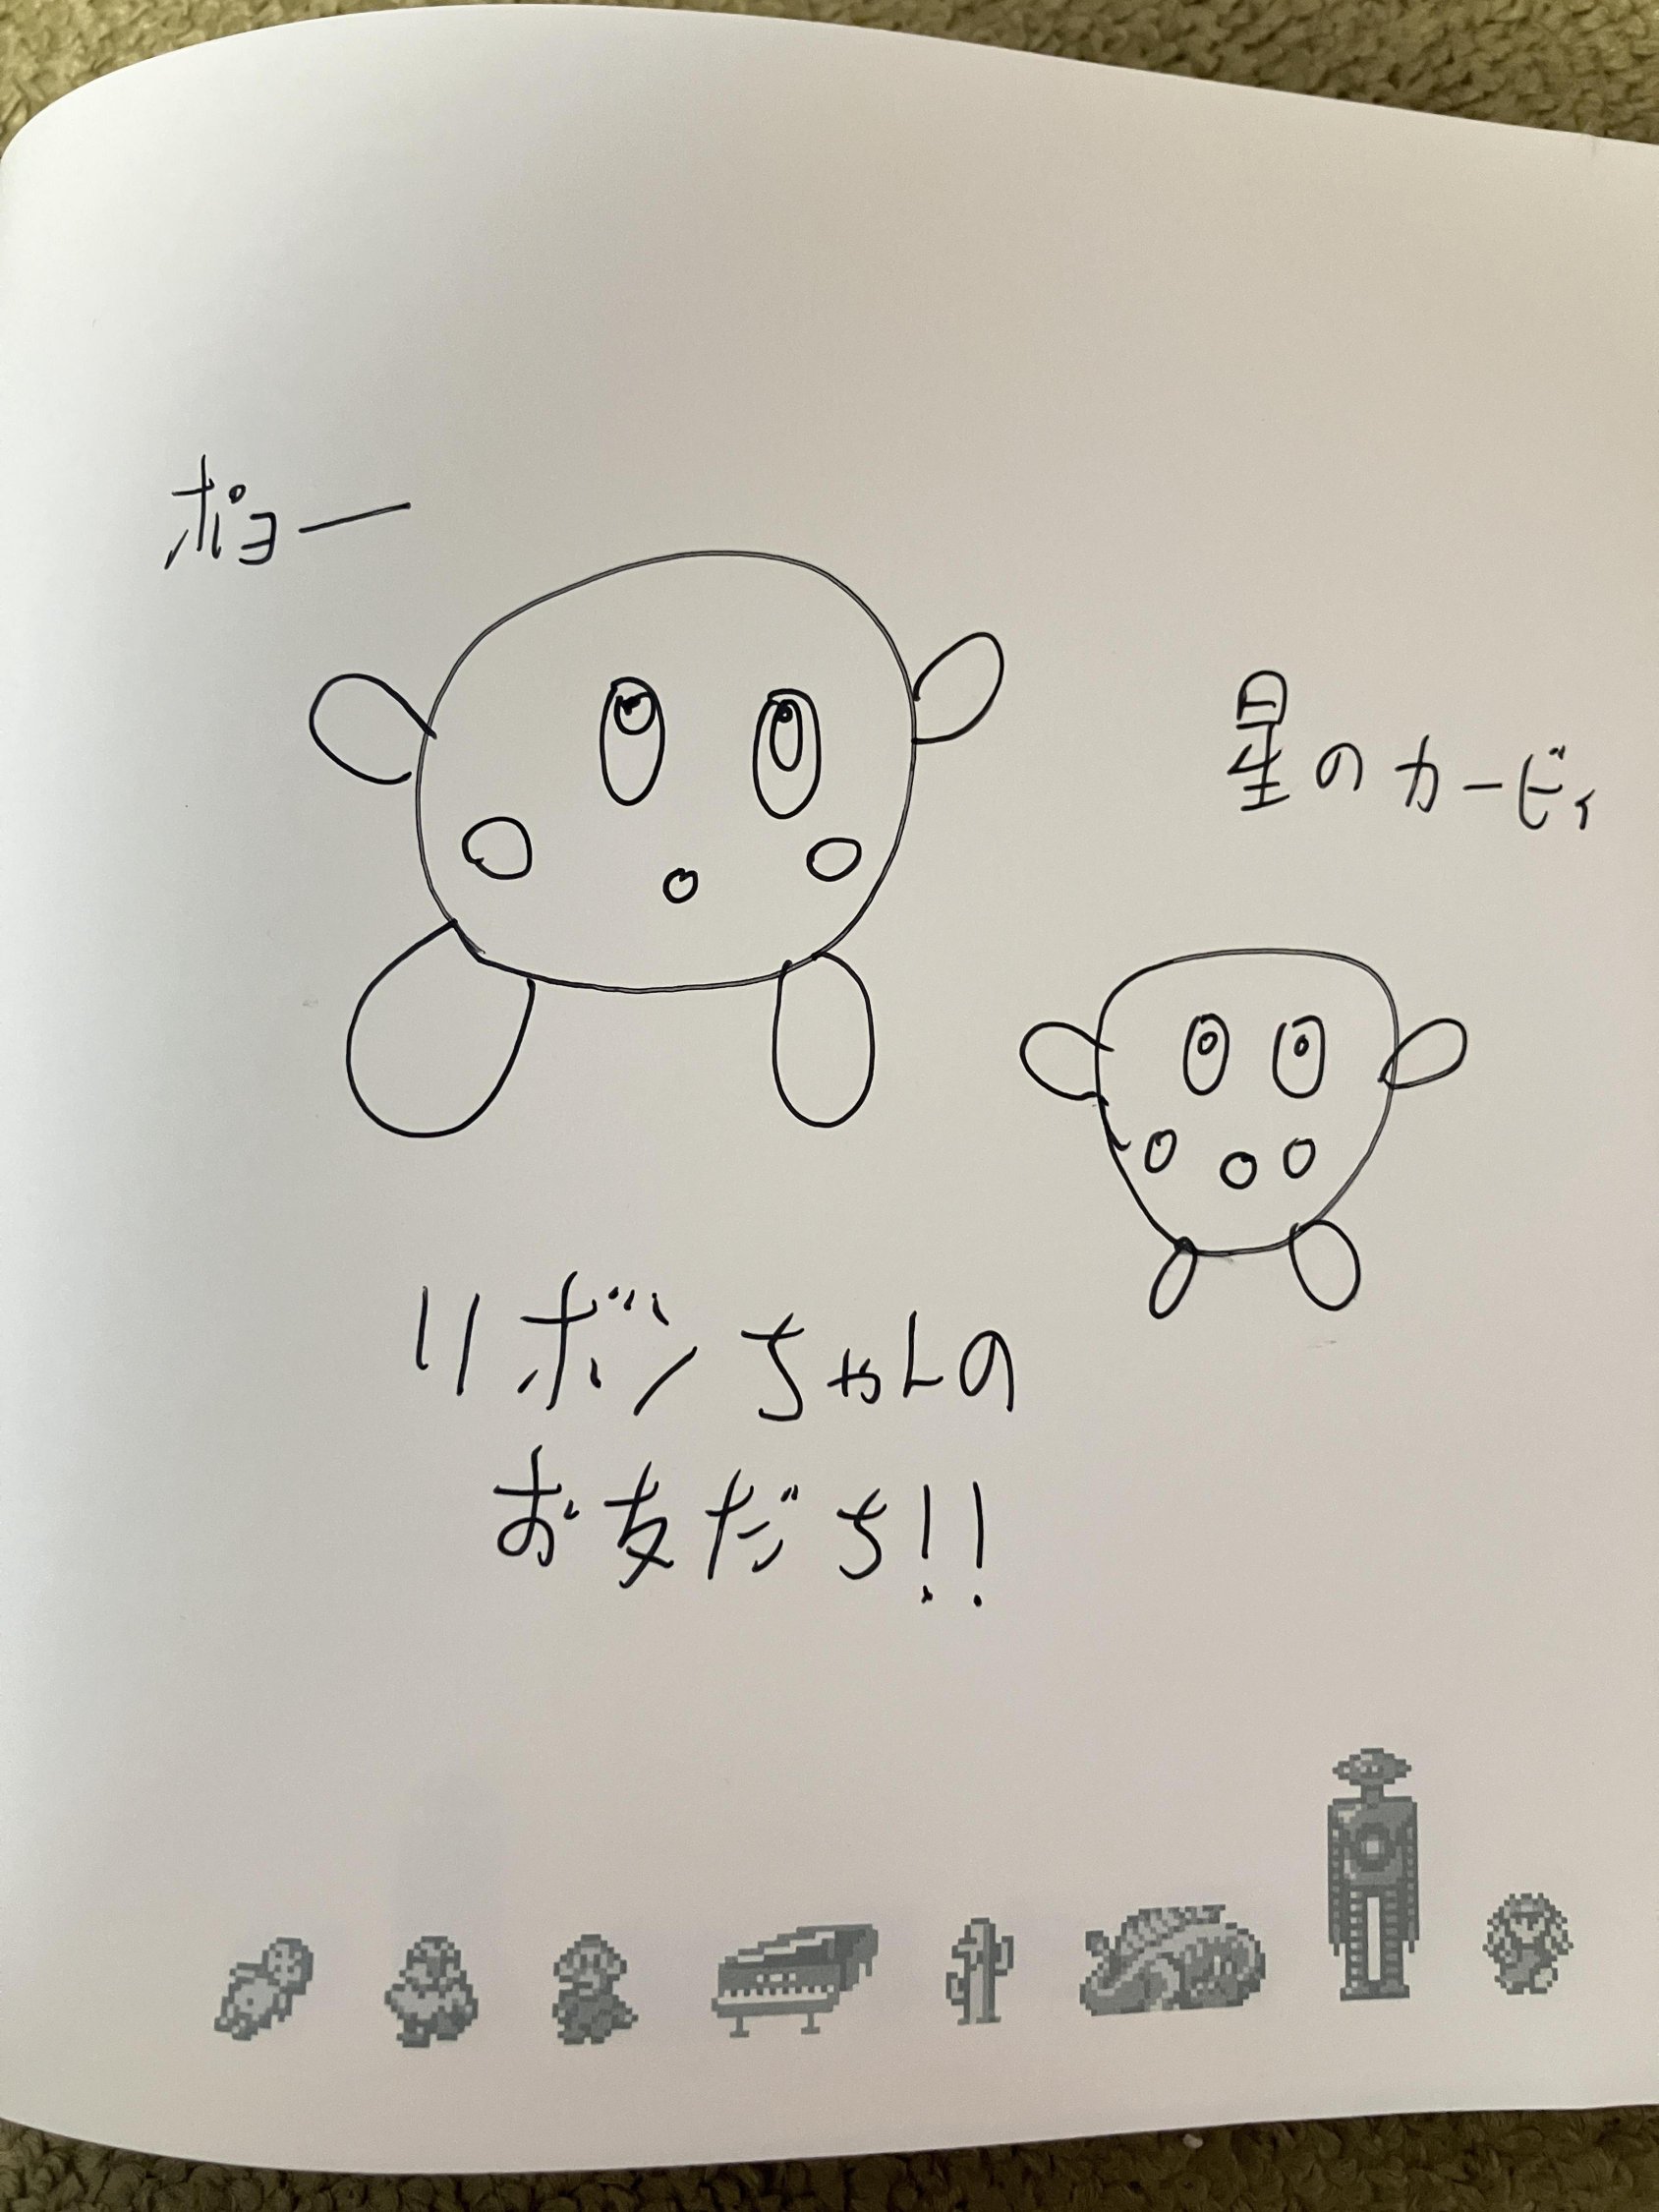 ポョー
星のカービィ
リボンちゃんの
お友だち!!